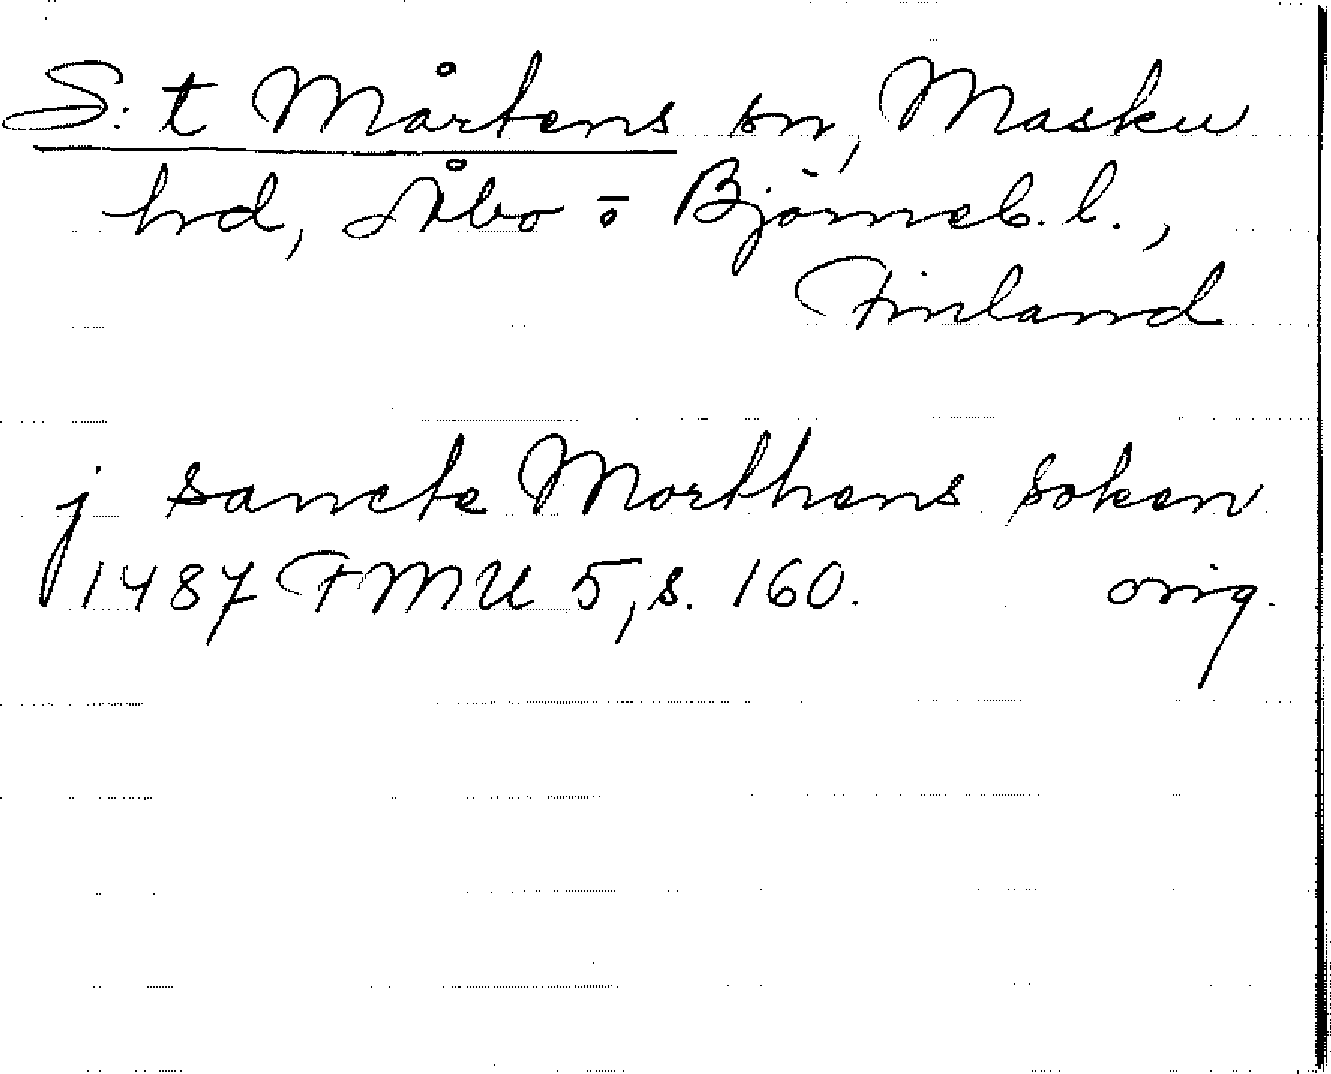 S:t Mårtens sn, Masku
hd, Åbo o Björneb. l.,
Finland
j sancte Morthens soken
1487 FMU 5, s. 160. orig.